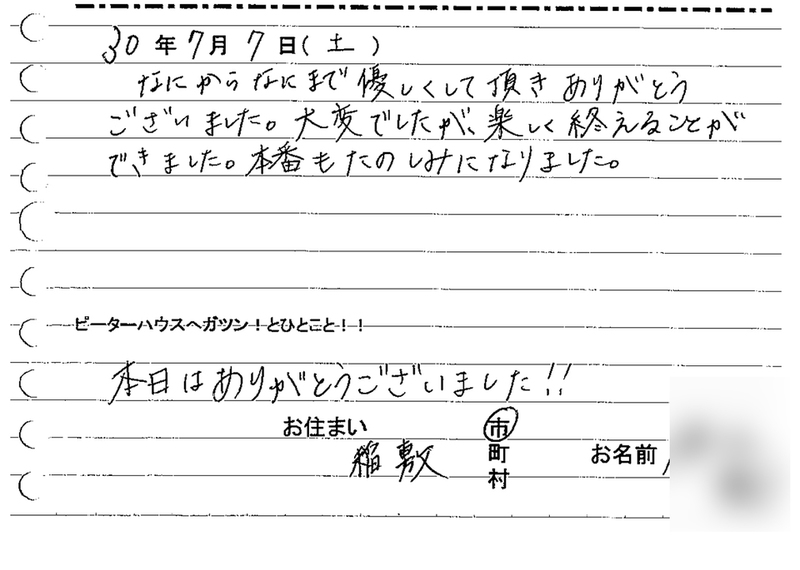 30年7月7日(土)
なにからなにまで優しくして頂きありがとう
ございました。大変でしたが、楽しく終えることが
できました。本番もたのしみになりました。
ピーターハウスへガツン!とひとこと!!
本日はありがとうございました!!
お住まい
稲敷
市
町
村
お名前